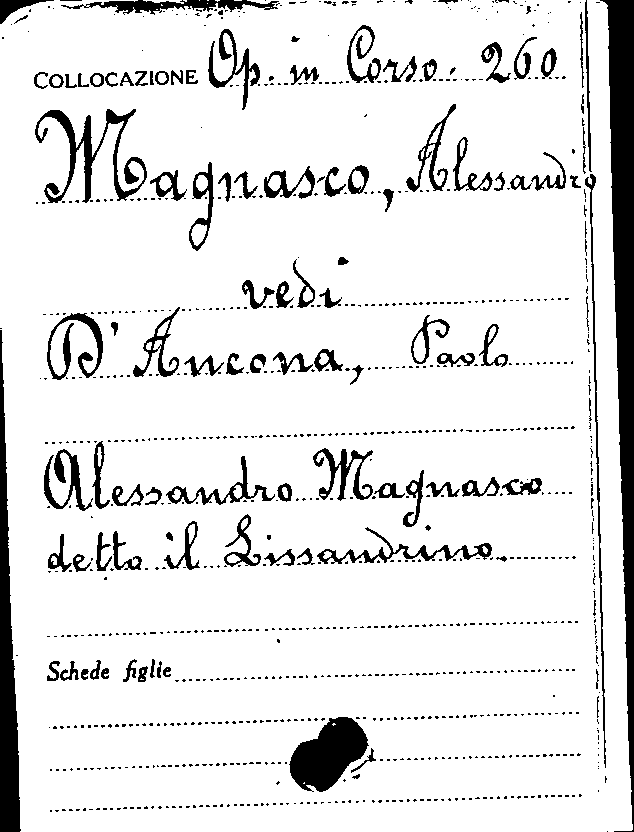 COLLOCAZIONE Op. in Corso. 260
Magnasco, Alessandro
vedi
D'Ancona, Paolo
Alessandro Magnasco
detto il Lissandrino.
Schede figlie